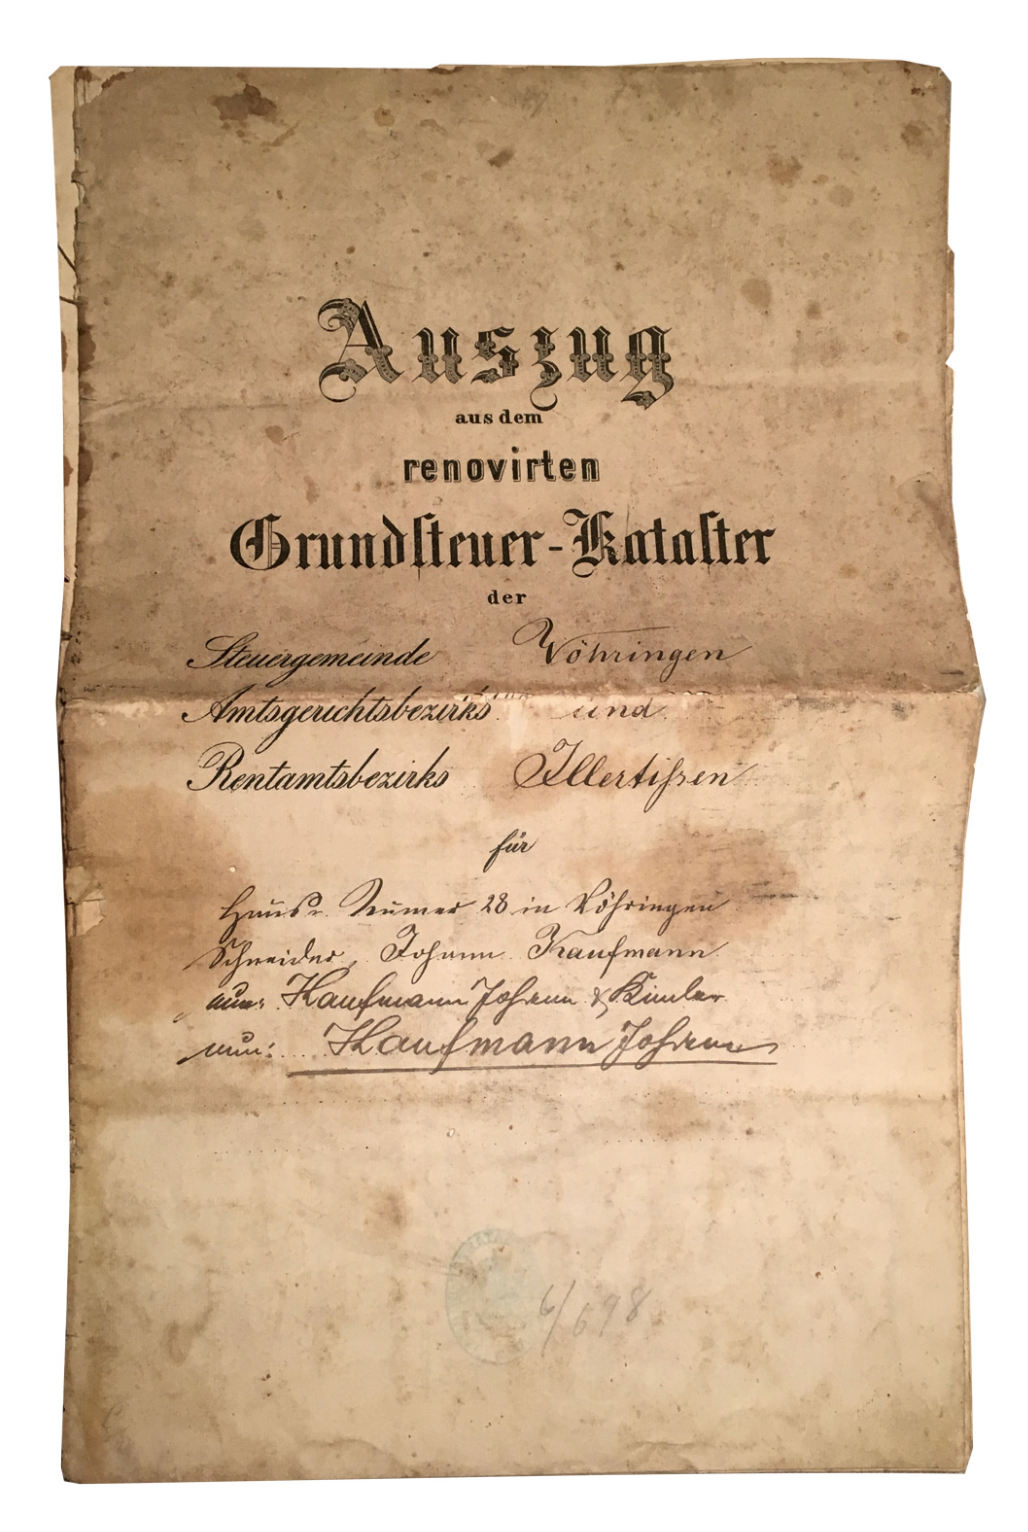 Auszug
aus dem
renovirten
Grundsteuer-Kataster
der
Steuergemeinde Vöhringen
Amtsgerichtsbezirks und
Rentamtsbezirks Illertissen
für
Haus Numer 28 in Vöhringen
Schneider, Johann Kaufmann
nun: Kaufmann Johann & Kinder
nun: Kaufmann Johann
6/698